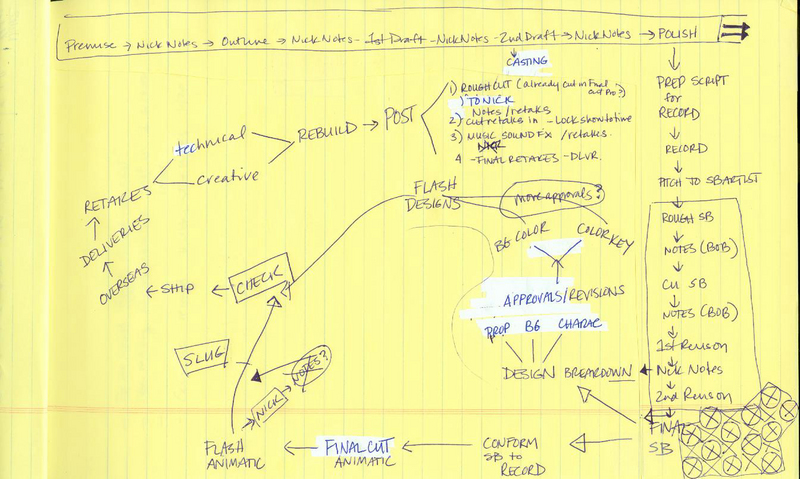 Premise → Nick Notes → Outline → Nick Notes - 1st Draft - Nick Notes - 2nd Draft → Nick Notes → POLISH
CASTING
1) ROUGH CUT (already cut in Final Cut Pro?)
) TO NICK
Notes/retakes
2) cut retakes in - Lock show to time
3) MUSIC SOUND FX /retakes.
4 - FINAL RETAKES - DLVR.
PREP SCRIPT
for
RECORD
RECORD
PITCH TO SB ARTIST
ROUGH SB
NOTES (BOB)
CU SB
NOTES (BOB)
1st Revison
Nick Notes
2nd Revison
FINAL
SB
technical
creative
REBUILD → POST
RETAKES
DELIVERIES
OVERSEAS
SHIP
CHECK
FLASH
DESIGNS
more approvals?
BG COLOR
COLOR KEY
APPROVALS/REVISIONS
PROP BG CHARAC
DESIGN BREAKDOWN
SLUG
NICK
NOTES?
FLASH
ANIMATIC
FINAL CUT
ANIMATIC
CONFORM
SB to
RECORD